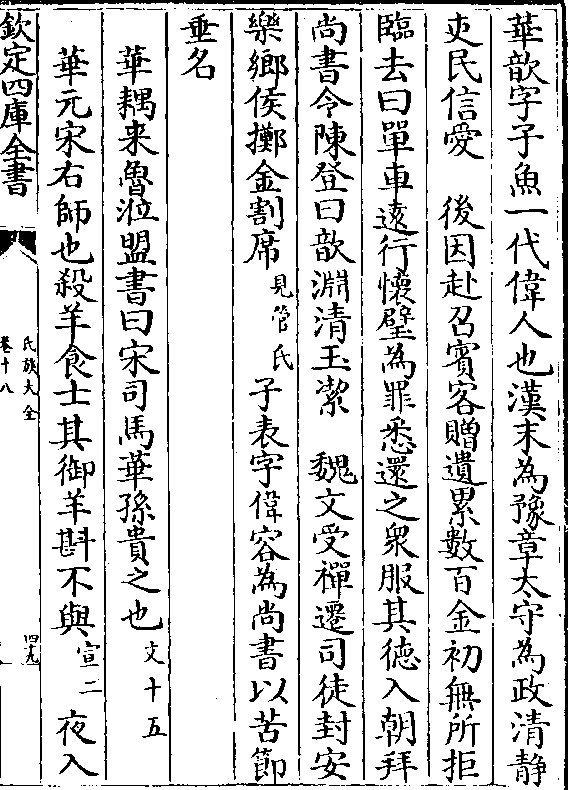 華歆字子魚一代偉人也漢末為豫章太守為政清静
吏民信愛　後因赴召賓客贈遺累數百金初無所拒
臨去曰單車遠行懷璧為罪悉還之衆服其徳入朝拜
尚書令陳登曰歆淵清玉潔　魏文受禪遷司徒封安
樂鄉侯擲金割席見管氏子表字偉容為尚書以苦節
垂名
華耦来魯涖盟書曰宋司馬華孫貴之也文十五
華元宋右師也殺羊食士其御羊斟不與宣二夜入
欽定四庫全書
氏族大全
卷十八